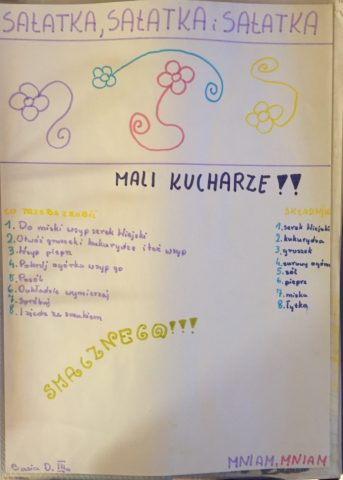 SAŁATKA, SAŁATKA i SAŁATKA
MALI KUCHARZE!!
CO TRZEBA ZROBIĆ
1. Do miski wsyp serek Wiejski
2. Otwóż gruszki kukurydze i też wsyp
3. Wsyp pieprz
4. Pokrój ogórka wsyp go
5. Posól
6. Dokładnie wymierzaj
7. Spróbuj
8. I zjedz ze smakiem
SKŁADNIKI
1. serek Wiejski
2. kukurydza
3. gruszek
4. surowy ogórek
5. sól
6. pieprz
7. miska
8. łyżka
SMACZNEGO!!!
Basia D. III a
MNIAM, MNIAM